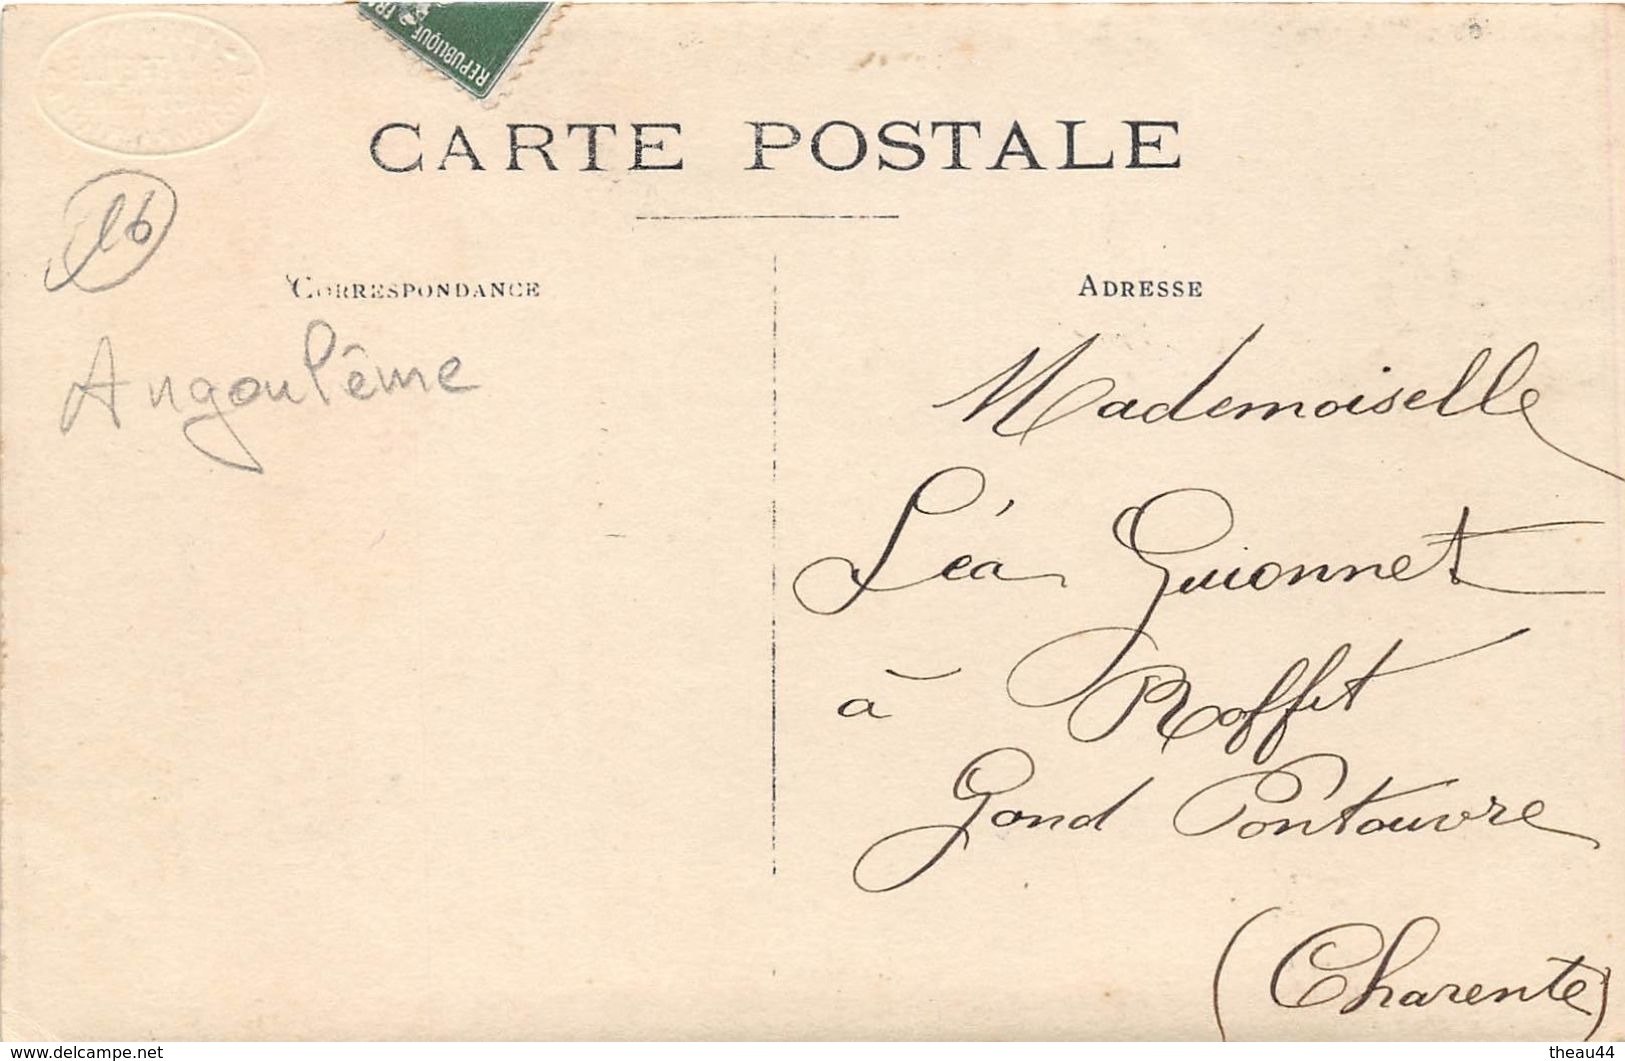 REPUBLIQUE FRA
CARTE POSTALE
16
CORRESPONDANCE
ADRESSE
Angoulême
Mademoiselle
Léa Guionnet
à Roffit
Gond Pontouvre
(Charente)
https://www.delcampe.net
theau44